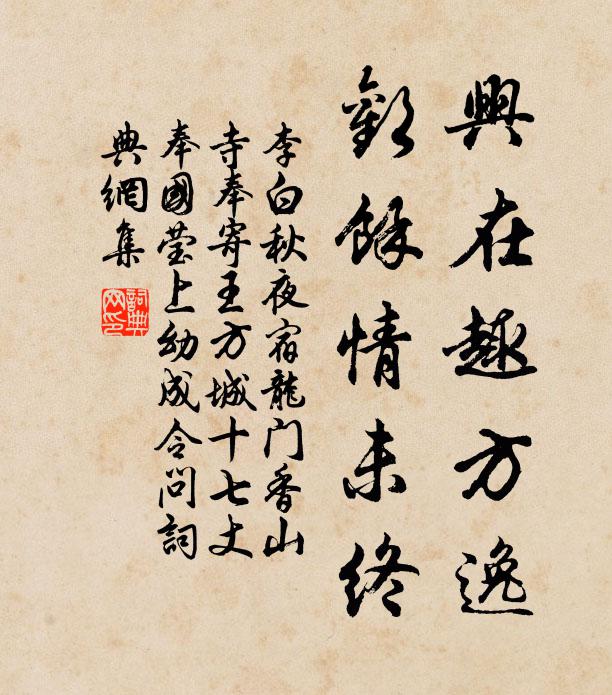 興在趣方逸
歡餘情未終
李白秋夜宿龍门香山
寺奉寄王方城十七丈
奉國瑩上幼成令問詞
典網集
詞典
网印